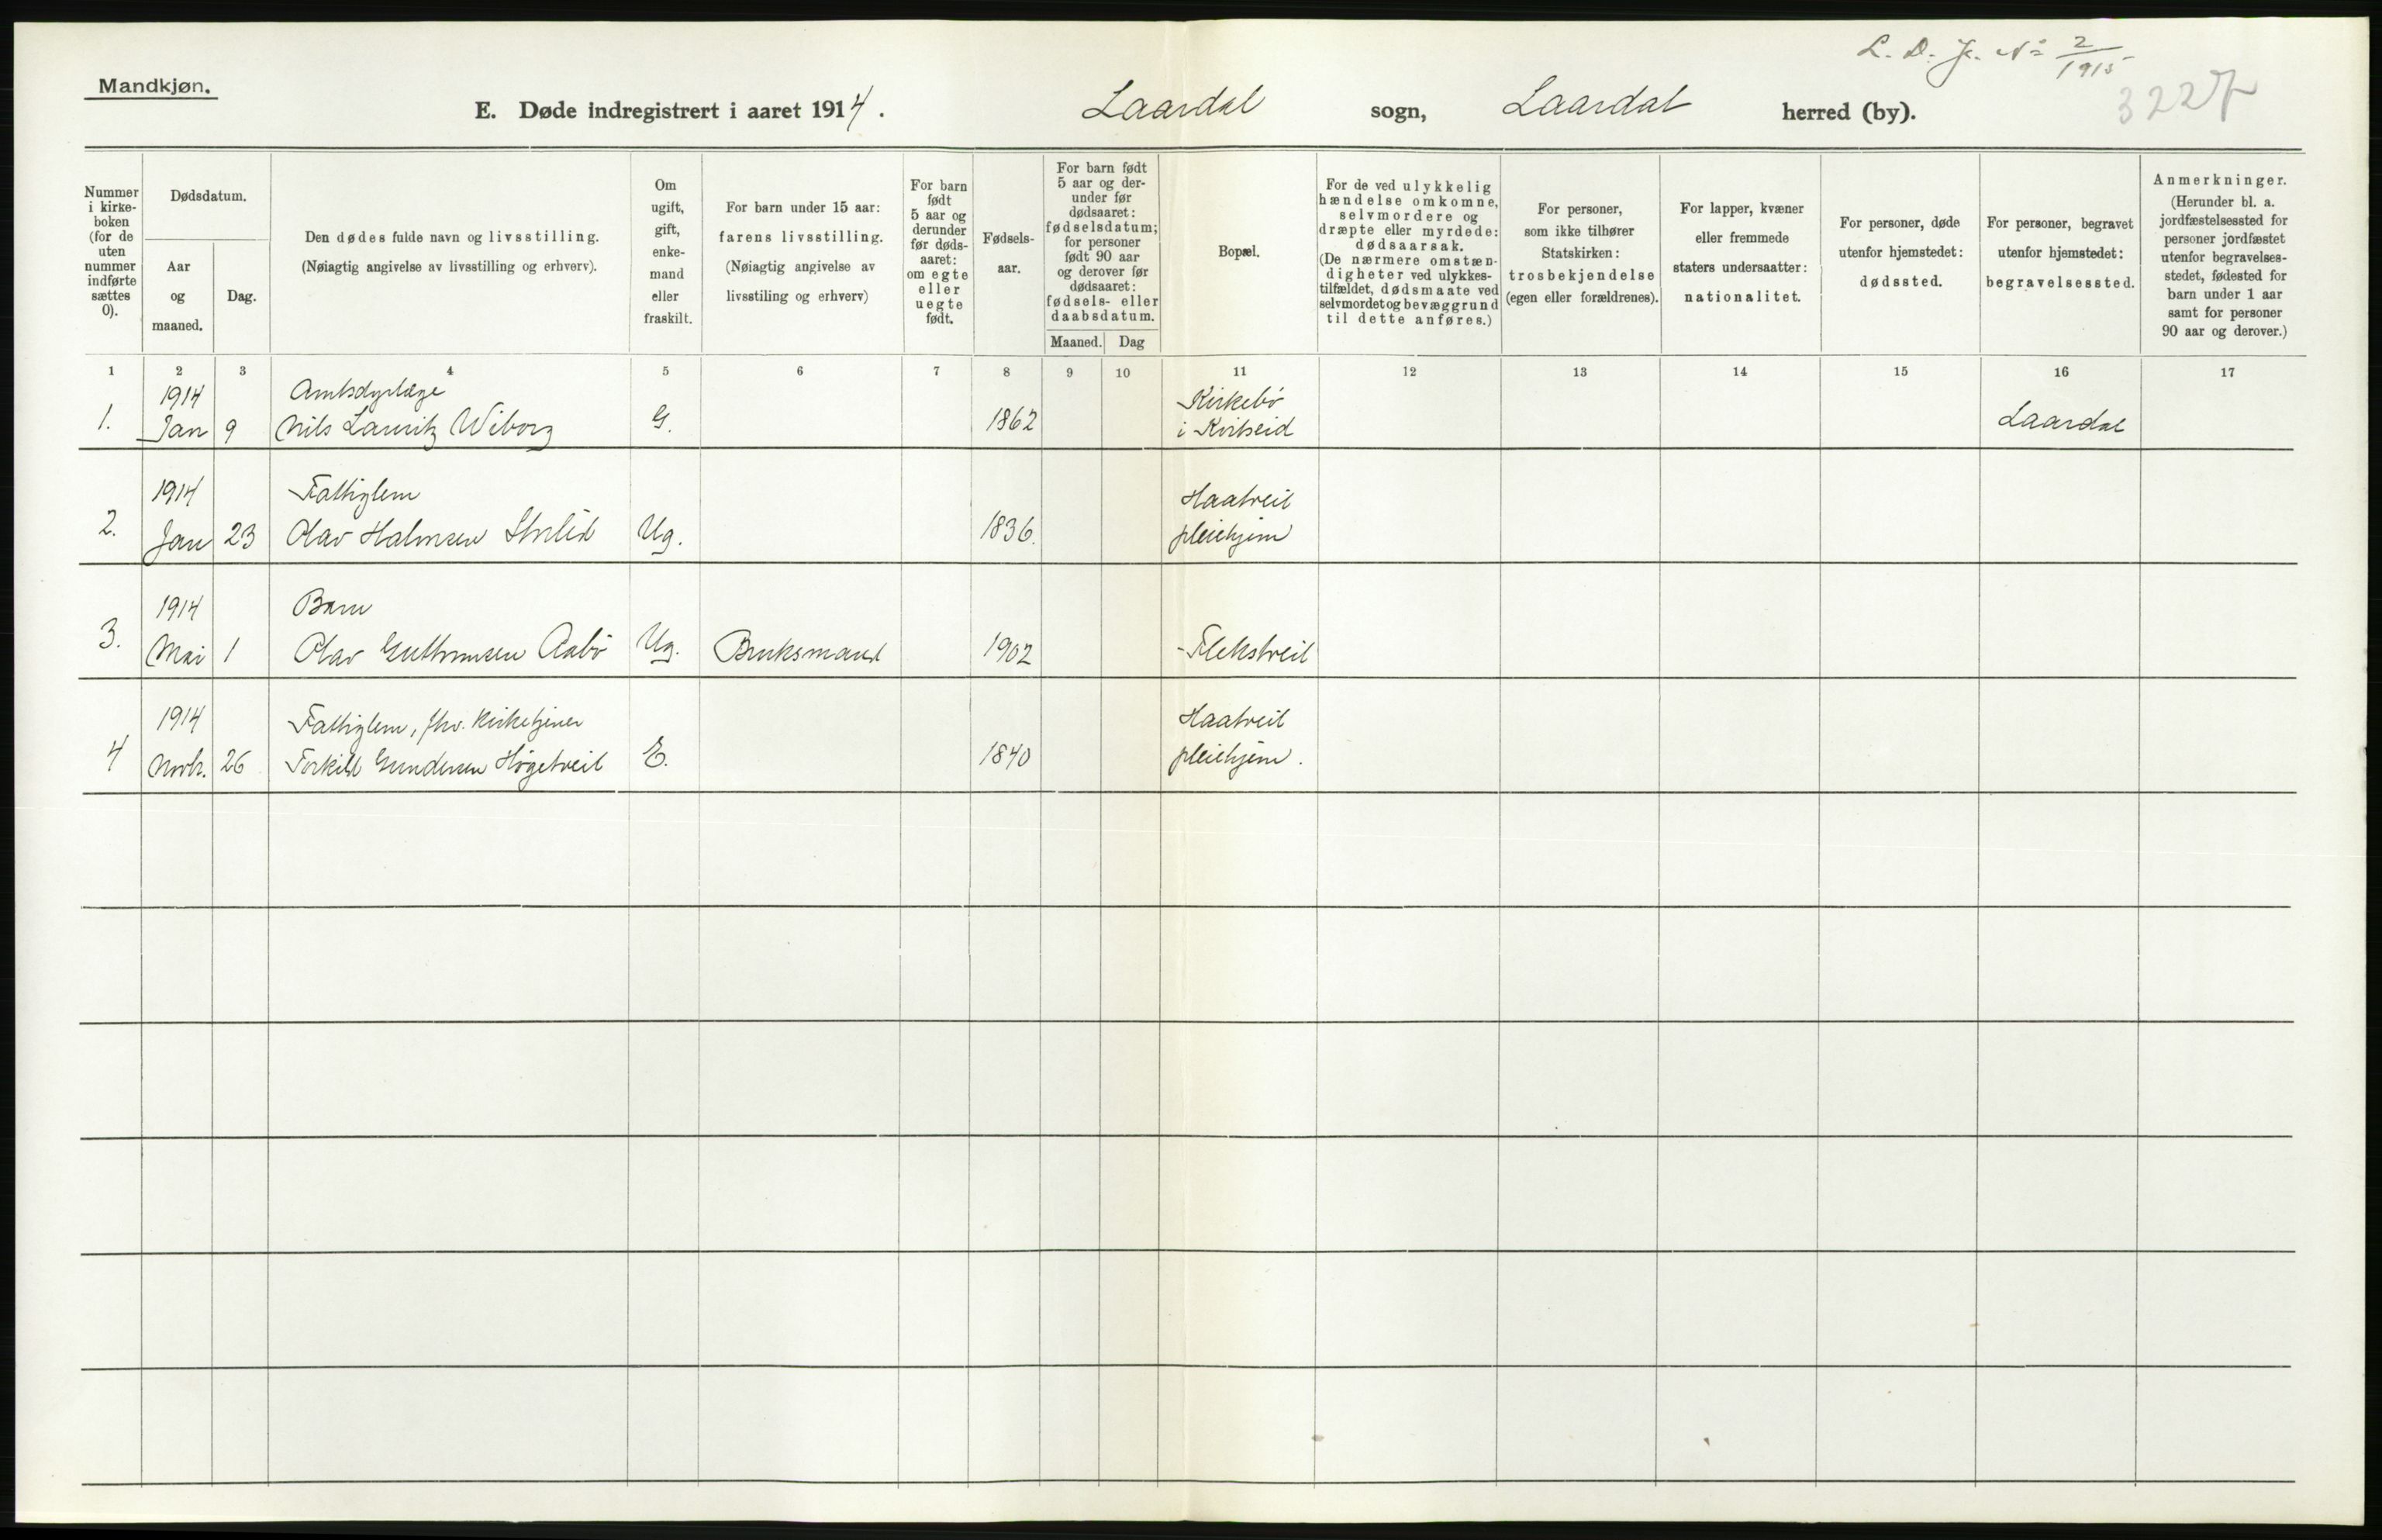 L. D. J. No 2/1915
3227
Mandkjøn.
E. Døde indregistrert i aaret 1914. Laardal sogn, Laardal herred (by).
Nummer i kirkeboken (for de uten nummer indførte sættes 0).
Dødsdatum.
Aar og maaned.
Dag.
Den dødes fulde navn og livsstilling.
(Nøiagtig angivelse av livsstilling og erhverv).
Om ugift, gift, enkemand eller fraskilt.
For barn under 15 aar:
farens livsstilling.
(Nøiagtig angivelse av
livsstiling og erhverv)
For barn født 5 aar og derunder før dødsaaret: om egte eller uegte født.
Fødselsaar.
For barn født 5 aar og derunder før dødsaaret: fødselsdatum; for personer født 90 aar og derover før dødsaaret: fødsels- eller daabsdatum.
Maaned. Dag
Bopæl.
For de ved ulykkelig hændelse omkomne, selvmordere og dræpte eller myrdede: dødsaarsak. (De nærmere omstændigheter ved ulykkestilfældet, dødsmaate ved selvmordet og bevæggrund til dette anføres.)
For personer, som ikke tilhører Statskirken: trosbekjendelse (egen eller forældrenes).
For lapper, kvæner eller fremmede staters undersaatter: nationalitet.
For personer, døde utenfor hjemstedet: dødssted.
For personer, begravet utenfor hjemstedet: begravelsessted.
Anmerkninger. (Herunder bl. a. jordfæstelsessted for personer jordfæstet utenfor begravelsesstedet, fødested for barn under 1 aar samt for personer 90 aar og derover.)
1 2 3 4 5 6 7 8 9 10 11 12 13 14 15 16 17
1914 Amtsdyrlæge Kirkebö
1. Jan 9 Nils Lauritz Wiborg G. 1862 i Kvitseid Laardal
1914 Fattiglem Haatveit
2. Jan 23 Olav Halvorsen Ug. 1836. pleiehjem
1914 Barn
3. Mai 1 Olav Guttormsen Aabö Ug. Bruksmand 1902 Flekstveit
1914 Fattiglem, fhv. Kirketjener Haatveit
4 Novbr. 26 Torkild Gundersen Högetveit E. 1840 pleiehjem.